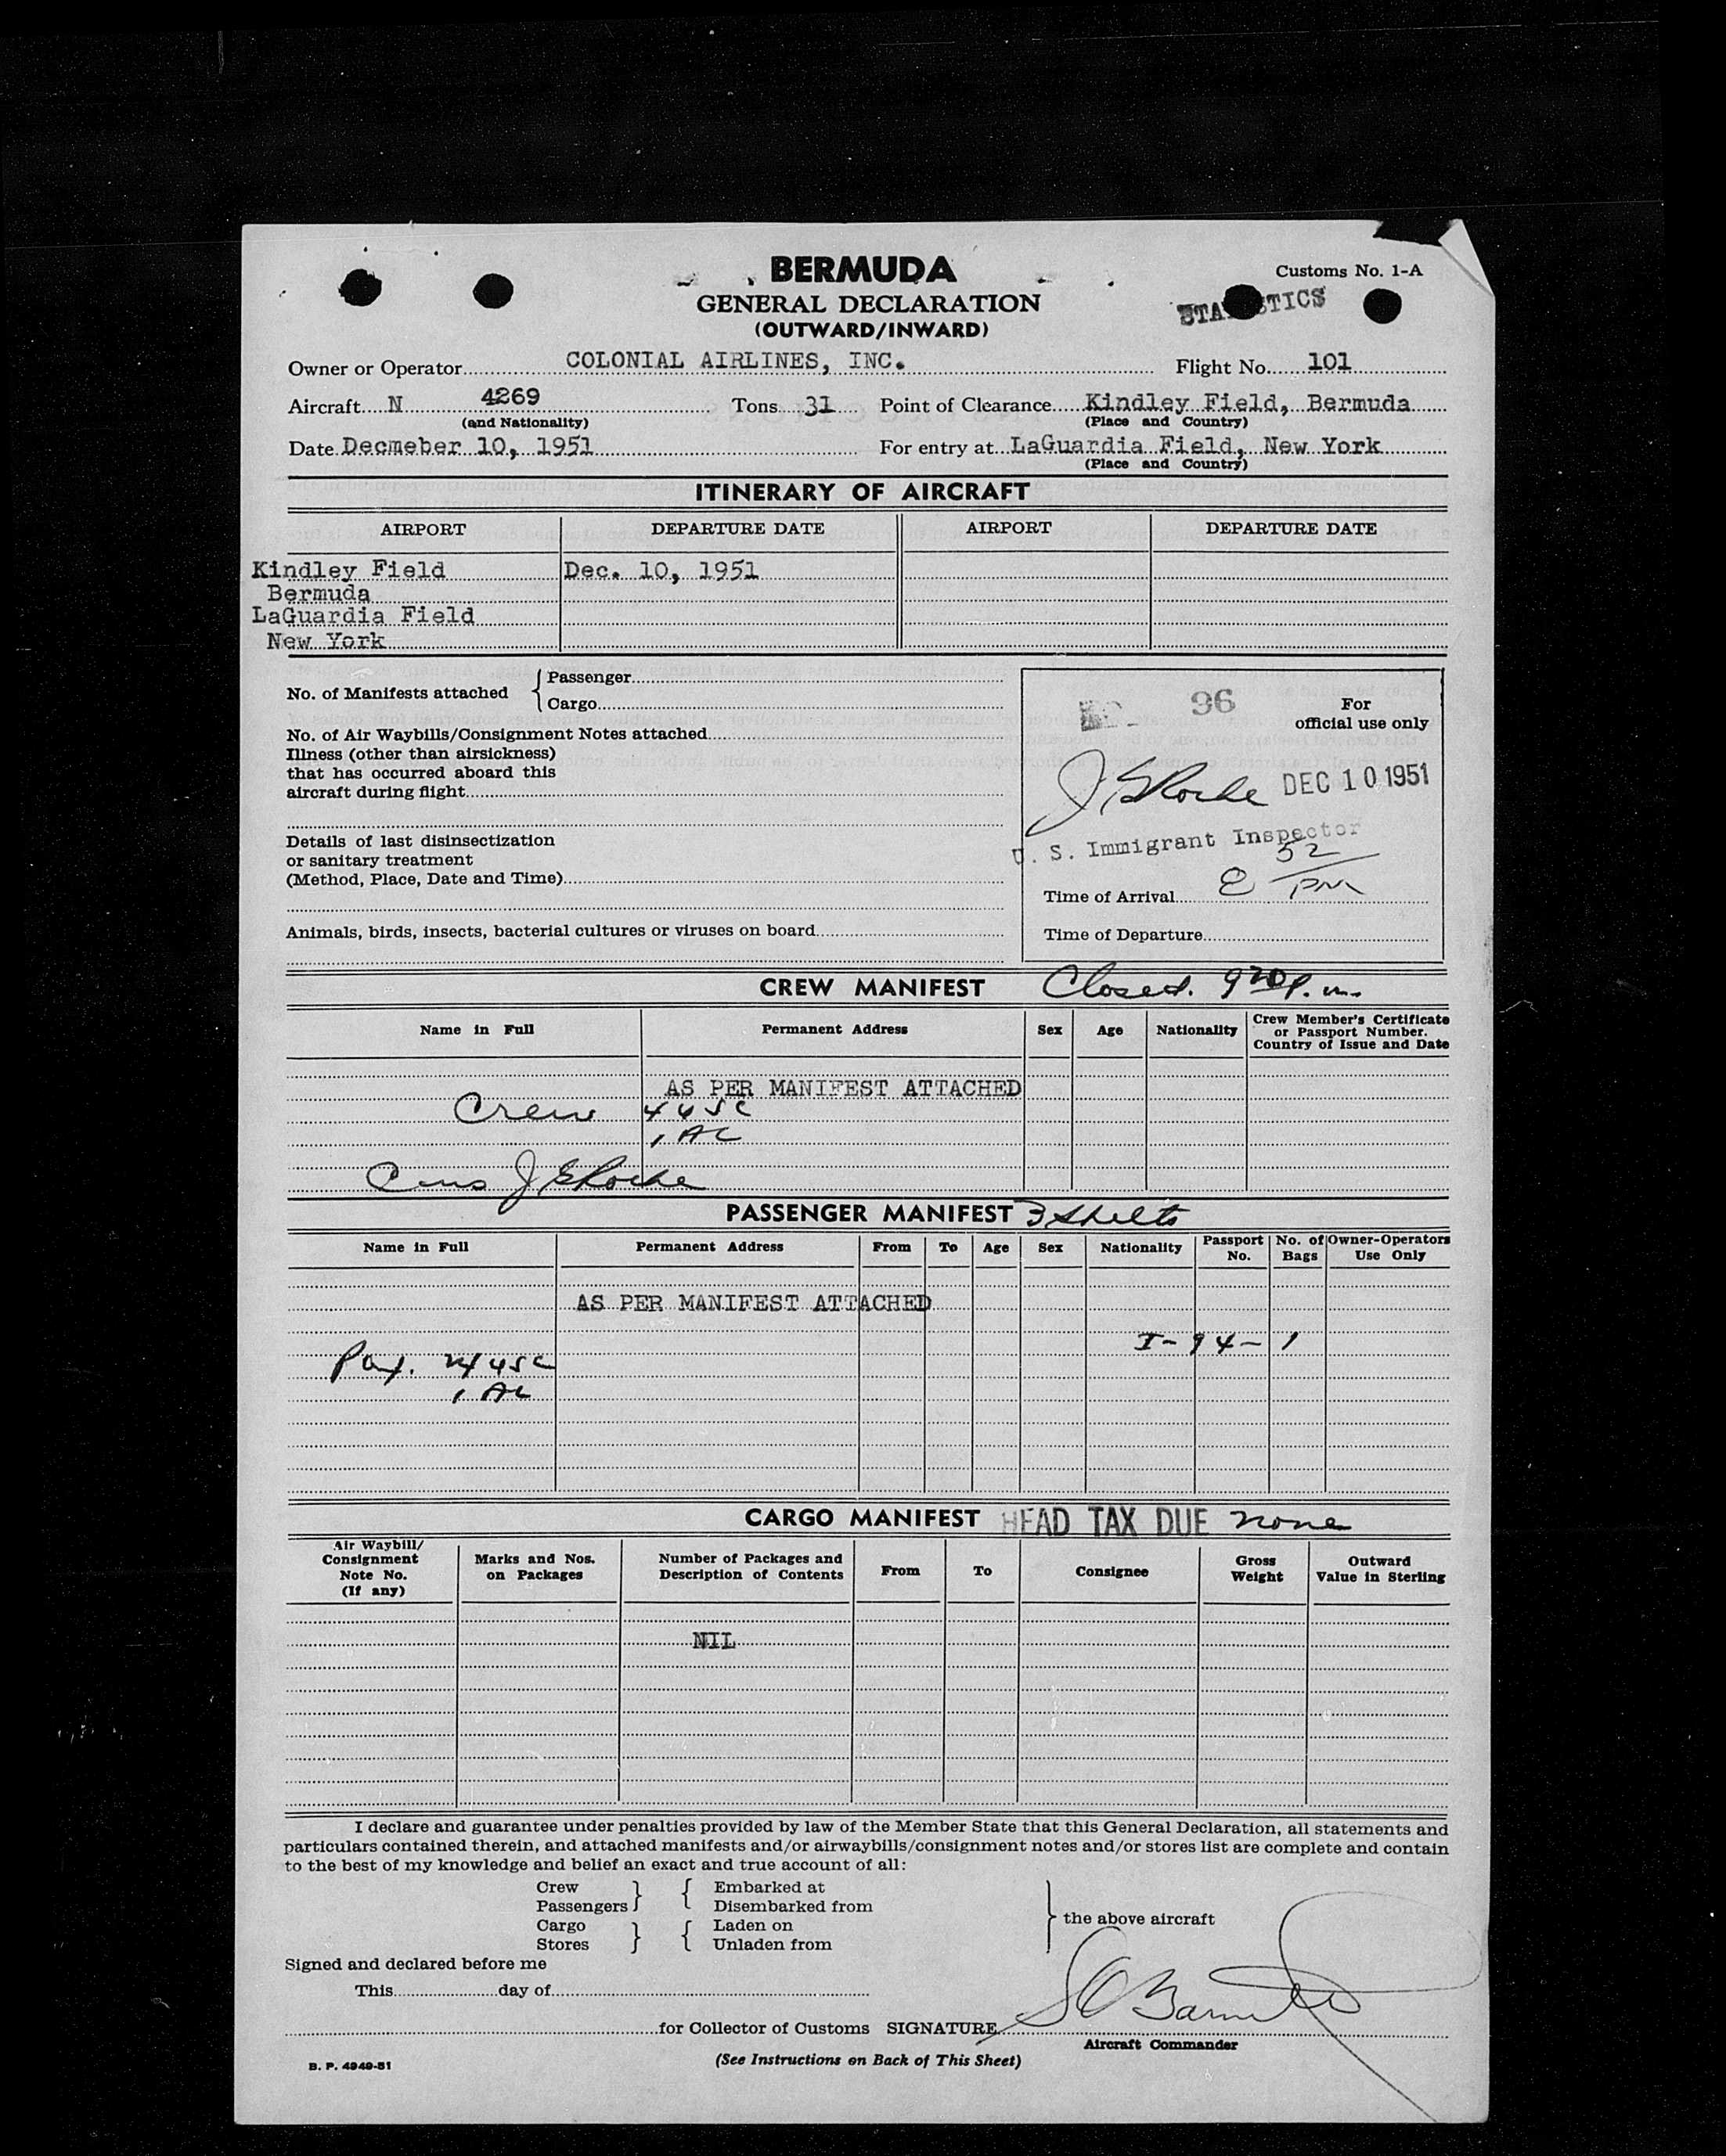 BERMUDA
Customs No. 1-A
GENERAL DECLARATION
(OUTWARD/INWARD)
Owner or Operator COLONIAL AIRLINES, INC. Flight No. 101
Aircraft N 4269 Tons 31 Point of Clearance Kindley Field, Bermuda
(and Nationality) (Place and Country)
Date Decmeber 10, 1951 For entry at LaGuardia Field, New York
(Place and Country)
ITINERARY OF AIRCRAFT
AIRPORT DEPARTURE DATE AIRPORT DEPARTURE DATE
Kindley Field Dec. 10, 1951
Bermuda
LaGuardia Field
New York
No. of Manifests attached
Passenger
Cargo
No. of Air Waybills/Consignment Notes attached
Illness (other than airsickness)
that has occurred aboard this
aircraft during flight
Details of last disinsectization
or sanitary treatment
(Method, Place, Date and Time)
Animals, birds, insects, bacterial cultures or viruses on board
96
For
official use only
DEC 10 1951
U. S. Immigrant Inspector
Time of Arrival 8 52 PM
Time of Departure
CREW MANIFEST Closed. 9 20 P.m.
Name in Full Permanent Address Sex Age Nationality Crew Member's Certificate
or Passport Number.
Country of Issue and Date
AS PER MANIFEST ATTACHED
Crew 4 USC
1 AC
PASSENGER MANIFEST 3 Sheets
Name in Full Permanent Address From To Age Sex Nationality Passport No. No. of Bags Owner-Operators Use Only
AS PER MANIFEST ATTACHED
I-94-1
USC
1 AC
CARGO MANIFEST HEAD TAX DUE none
Air Waybill/
Consignment
Note No.
(If any)
Marks and Nos.
on Packages
Number of Packages and
Description of Contents
From To Consignee
Gross
Weight
Outward
Value in Sterling
NIL
I declare and guarantee under penalties provided by law of the Member State that this General Declaration, all statements and
particulars contained therein, and attached manifests and/or airwaybills/consignment notes and/or stores list are complete and contain
to the best of my knowledge and belief an exact and true account of all:
Crew Embarked at
Passengers Disembarked from
Cargo Laden on
Stores Unladen from
the above aircraft
Signed and declared before me
This day of
for Collector of Customs SIGNATURE
Aircraft Commander
B. P. 4949-51
(See Instructions on Back of This Sheet)